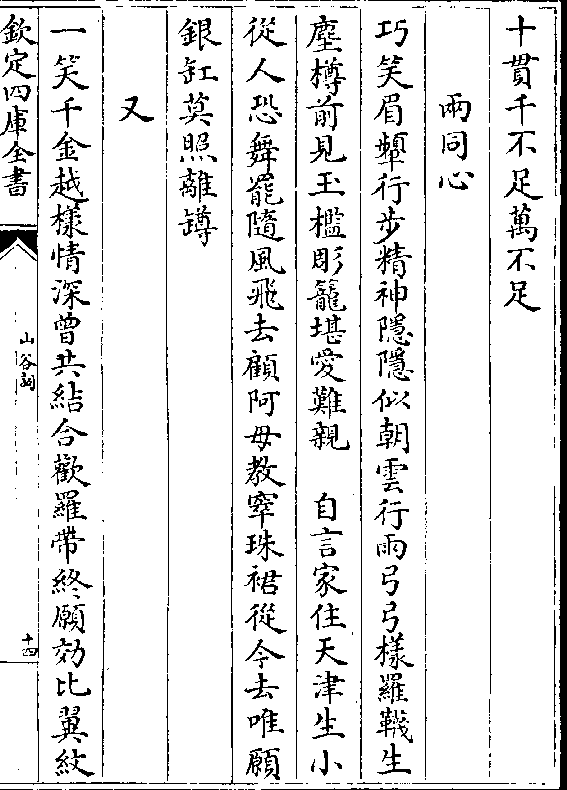 十貫千不足萬不足
兩同心
巧笑眉顰行步精神隱隱似朝雲行雨弓弓樣羅韈生
塵樽前見玉檻彫籠堪愛難親　自言家住天津生小
從人恐舞罷隨風飛去顧阿母教窣珠裙從今去唯願
銀缸莫照離罇
又
一笑千金越樣情深曾共結合歡羅帶終願効比翼紋
欽定四庫全書
山谷詞
十四